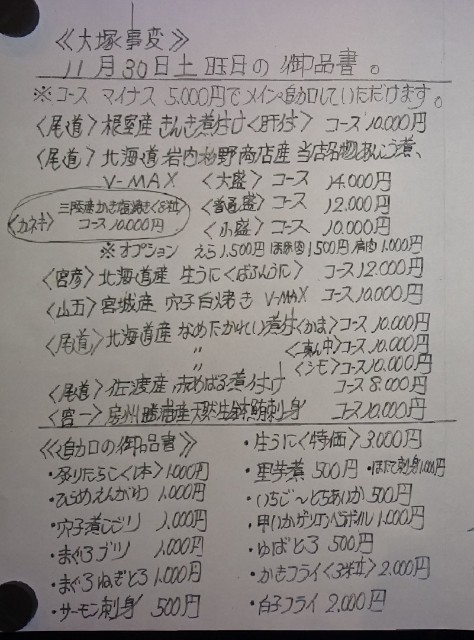 ≪大塚事変≫
11月30日土曜日の御品書。
※コース マイナス 5.000円でメイン自加口していただけます。
〈尾道〉根室産 きんき煮付け〈肝付〉 コース 10.000円
〈尾道〉北海道 岩内 野商店産 当店名物あんこう煮、
V-MAX 〈大盛〉 コース 14.000円
〈普通盛〉 コース 12.000円
〈小盛〉 コース 10.000円
〈カネキ〉 三陸産かき塩焼き〈8丼〉
コース 10.000円
※オプション えら 1.500円 ほほ肉 1.500円 肩肉 1.000円
〈宮彦〉北海道産 生うに〈ばふんうに〉 コース 12.000円
〈山五〉宮城産 穴子白焼き V-MAX コース 10.000円
〈尾道〉北海道産 なめたかれい煮付〈かま〉コース 10.000円
〃 〈真ん中〉コース 10.000円
〃 〈シモ〉コース 10.000円
〈尾道〉佐渡産 赤めばる煮付け コース 8.000円
〈宮一〉房州勝浦産天然生鮪刺身 コース 10.000円
≪自加口の御品書≫
・炙りたらこ〈1本〉 1.000円
・ひらめえんがわ 1.000円
・穴子煮こごり 1.000円
・まぐろブツ 1.000円
・まぐろねぎとろ 1.000円
・サーモン刺身 500円
・生うに〈特価〉 3.000円
・里芋煮 500円 ・ほたて刺身 1.000円
・いちご〜とちあいか 500円
・甲いかゲソワンペボイル 1.000円
・ゆばとろ 500円
・かきフライ〈3丼〉 2.000円
・白子フライ 2.000円